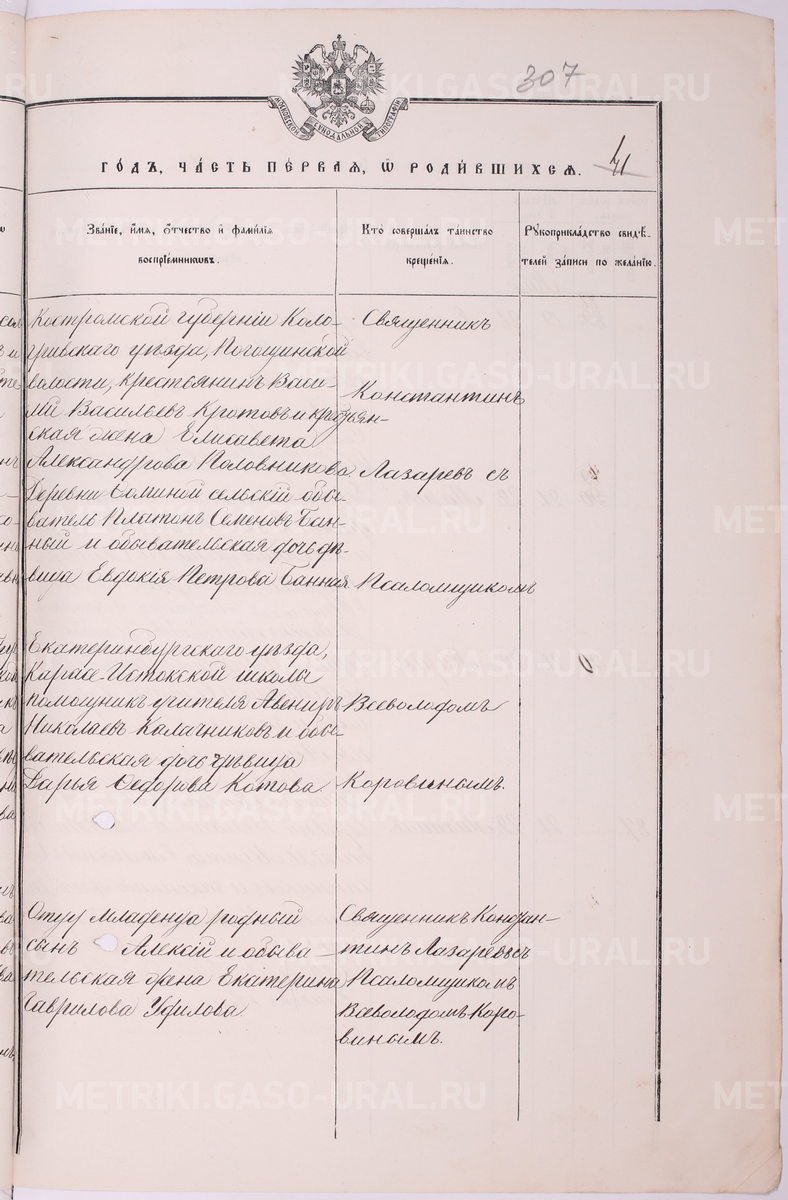 307
МОСКОВСКОЙ СѴНОДАЛЬНОЙ ТИПОГРАФІИ
ГО́ДЪ, ЧА́СТЬ ПЕ́РВАЯ, Ѡ҆ РОДИ́ВШИХСЯ.
41
Зва́нїе, и҆́мя, ѻ҆́тчество и҆ фами́лїя
воспрїе́мникѡвъ.
Кто̀ соверша́лъ та́инство
креще́нїя.
Рꙋкоприкла́дство свидѣ́-
телей за́писи по жела́нїю.
Костромской губерніи Коло-
гривскаго уѣзда, Погощинской
волости, крестьянинъ Васи-
лій Васильевъ Кротовъ и кресьян-
ская жена Елисавета
Александрова Половникова
Деревни Соминой сельскій обы-
ватель Платонъ Семеновъ Бан-
ный и обывательская дочь дѣ-
вица Евдокія Петрова Банная
Священникъ
Константинъ
Лазаревъ съ
Псаломщикомъ
Екатеринбургскаго уѣзда,
Карасе-Истокской школы
помощникъ учителя Авениръ
Николаевъ Калачниковъ и обы-
вательская дочь дѣвица
Дарья Ѳедорова Котова
Всеволодомъ
Коровинымъ.
Отцу младенца родный
сынъ Алексій и обыва-
тельская жена Екатерина
Гаврилова Уфилова
Священникъ Констан-
тинъ Лазаревъ съ
Псаломщикомъ
Всеволодомъ Коро-
винымъ.
METRIKI.GASO-URAL.RU